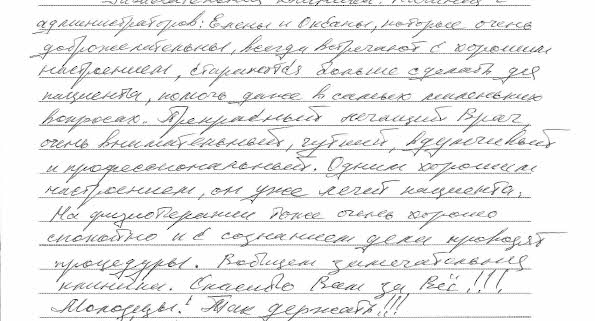 Замечательная клиника. Начиная с
администраторов: Елены и Оксаны, которые очень
доброжелательны, всегда встречают с хорошим
настроением, стараются больше сделать для
пациента, помочь даже в самых маленьких
вопросах. Прекрасный лечащий врач,
очень внимательный, чуткий, вдумчивый
и профессиональный. Одним хорошим
настроением, он уже лечит пациента.
На физиотерапии тоже очень хорошо
спокойно и с сознанием дела проводят
процедуры. Вобщем замечательная
клиника. Спасибо Вам за Всё!!!
Молодцы! Так держать!!!